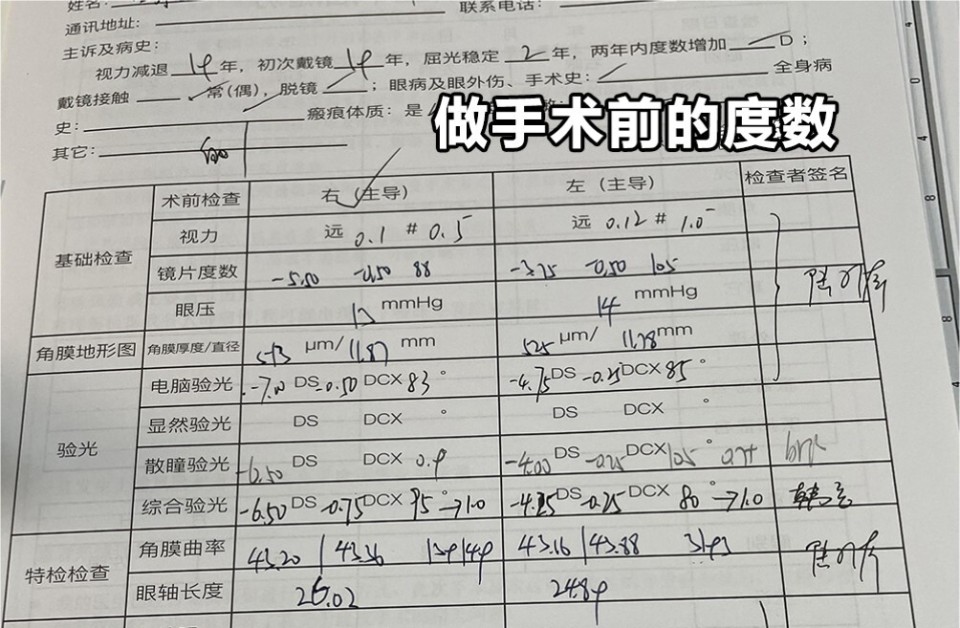 姓名:
通讯地址: 联系电话:
主诉及病史:
视力减退 年，初次戴镜 年，屈光稳定 2 年，两年内度数增加 D；
戴镜接触 常(偶)，脱镜 ；眼病及眼外伤、手术史: 全身病
史: 瘢痕体质: 是
做手术前的度数
其它:
术前检查 右（主导） 左（主导） 检查者签名
基础检查
视力 远 0.1 # 0.5 远 0.12 # 1.0
镜片度数 -5.50 -0.50 88 -3.75 -0.50 105
眼压 13 mmHg 14 mmHg
角膜地形图 角膜厚度/直径 μm/ 11.87 mm 525 μm/ 11.78 mm
验光
电脑验光 -7.00 DS -0.50 DCX 83 ° -4.75 DS -0.25 DCX 85 °
显然验光 DS DCX ° DS DCX °
散瞳验光 -6.50 DS DCX 0.9 -4.00 DS -0.25 DCX 105 °
综合验光 -6.50 DS -0.75 DCX 95 ° →1.0 -4.25 DS -0.25 DCX 80 ° →1.0
特检检查
角膜曲率 43.20 / 43.36 43.16 / 43.88
眼轴长度 26.02 24.89